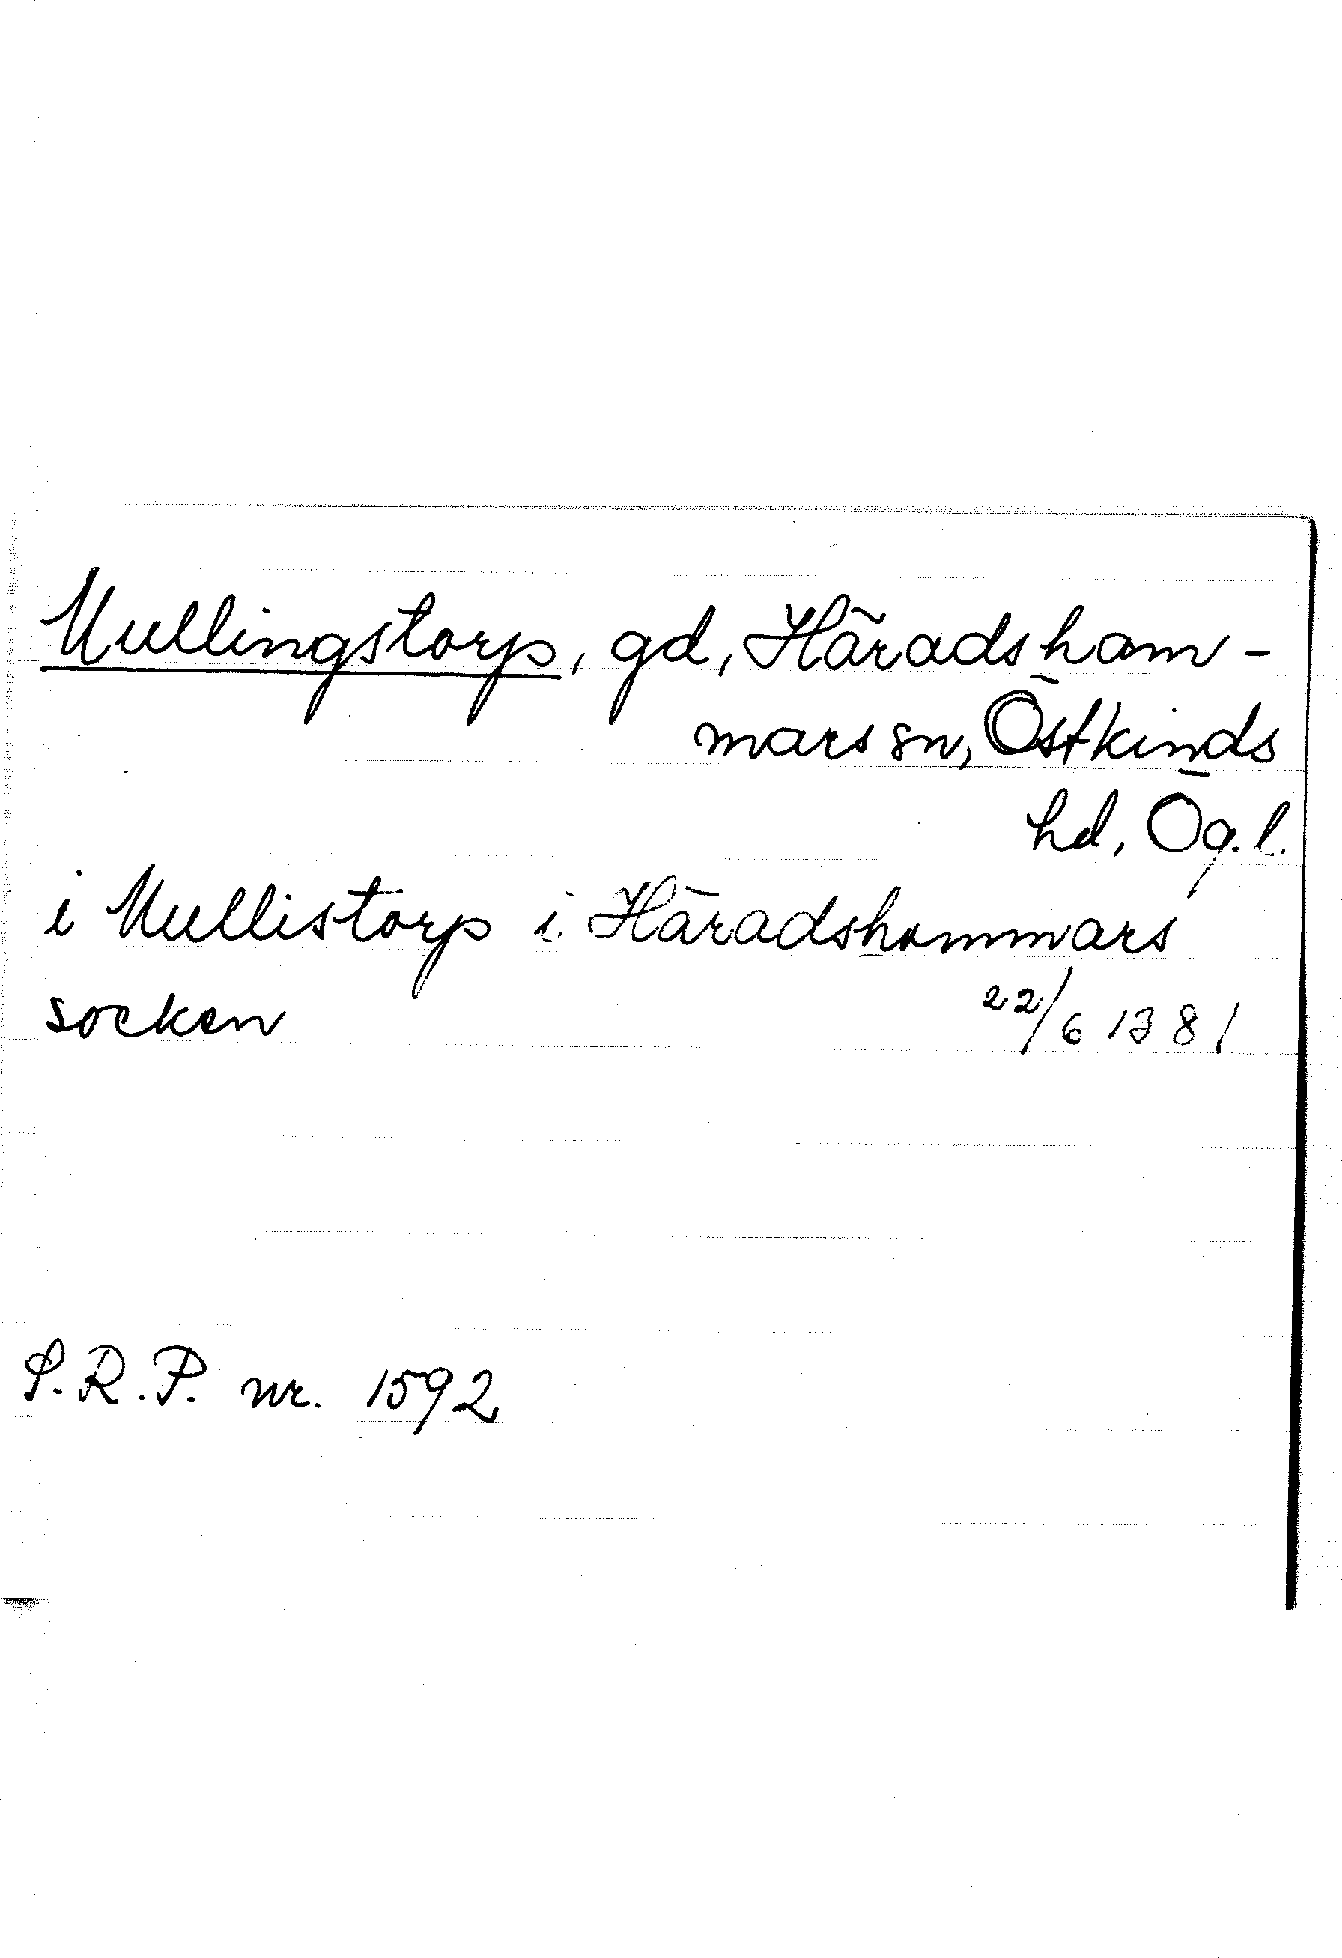 Mullingstorp, gd, Häradsham-
mars sn, Östkinds
hd, Ög.l.
i Mullistorp i Häradshammars
socken 22/6 1381
S.R.P. nr. 1592